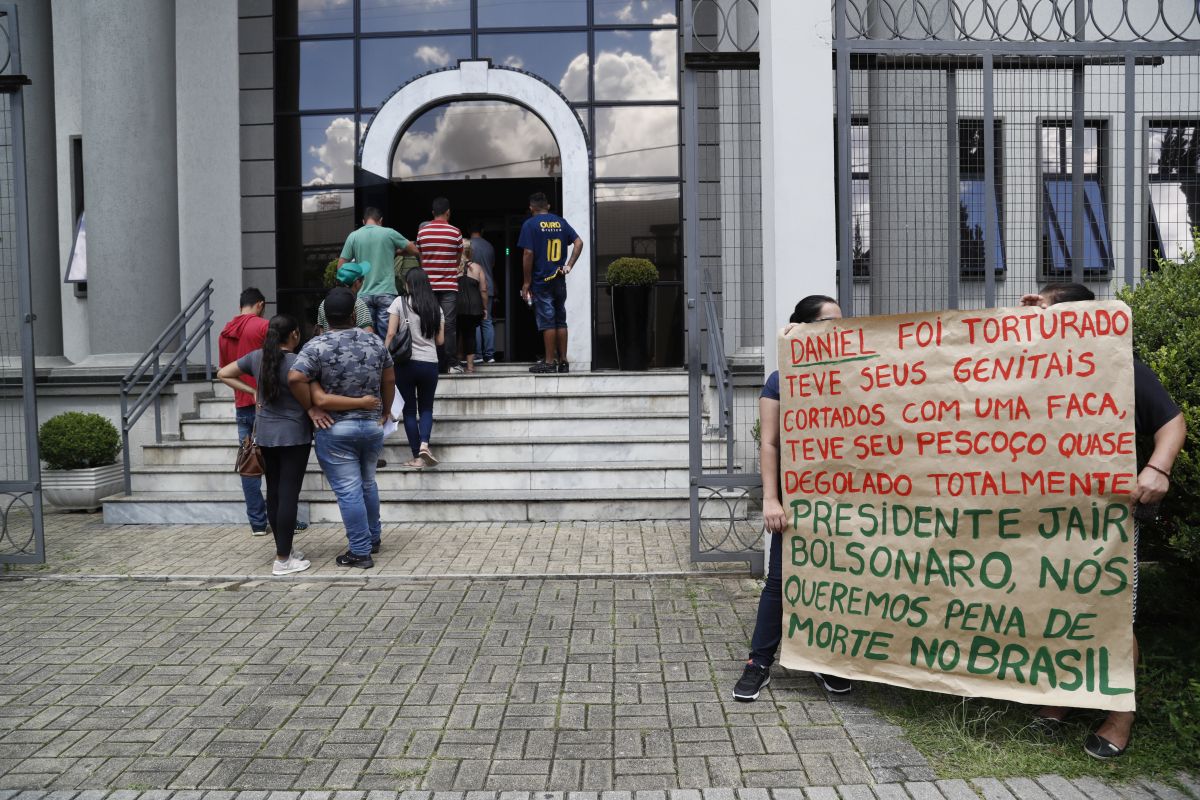 OURO
Gráfica
10
DANIEL FOI TORTURADO
TEVE SEUS GENITAIS
CORTADOS COM UMA FACA,
TEVE SEU PESCOÇO QUASE
DEGOLADO TOTALMENTE
PRESIDENTE JAIR
BOLSONARO, NÓS
QUEREMOS PENA DE
MORTE NO BRASIL